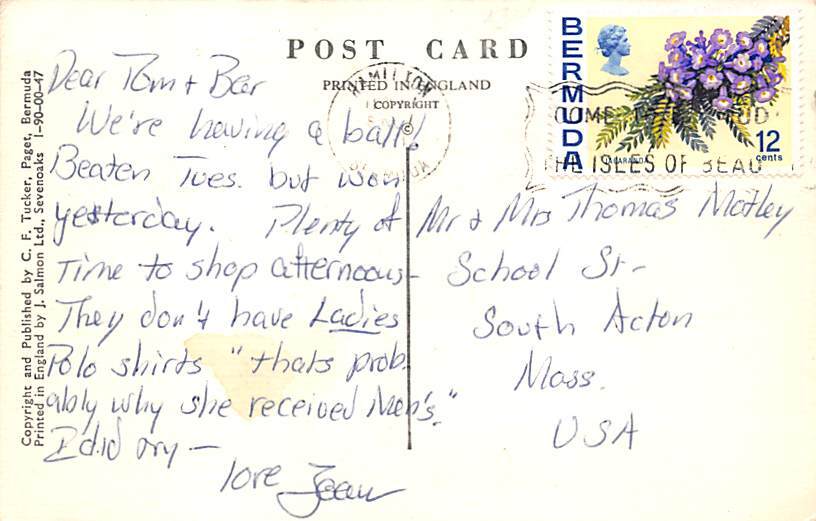 POST CARD
PRINTED IN ENGLAND
COPYRIGHT
©
Copyright and Published by C. F. Tucker, Paget, Bermuda
Printed in England by J. Salmon Ltd., Sevenoaks 1-90-00-47
Dear Tom + Bar
We're having a ball!
Beaten Tues. but won
yesterday. Plenty of
Time to shop afternoons-
They don't have Ladies
Polo shirts "thats prob.
ably why she received Men's."
I did try —
love Jean
BERMUDA
JACARANDA
12
cents
HAMILTON
COME TO
THE ISLES OF BEAU
Mr & Mrs Thomas Motley
School St-
South Acton
Mass.
USA